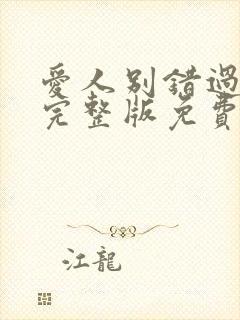 愛人別錯過
完整版免費
江龍